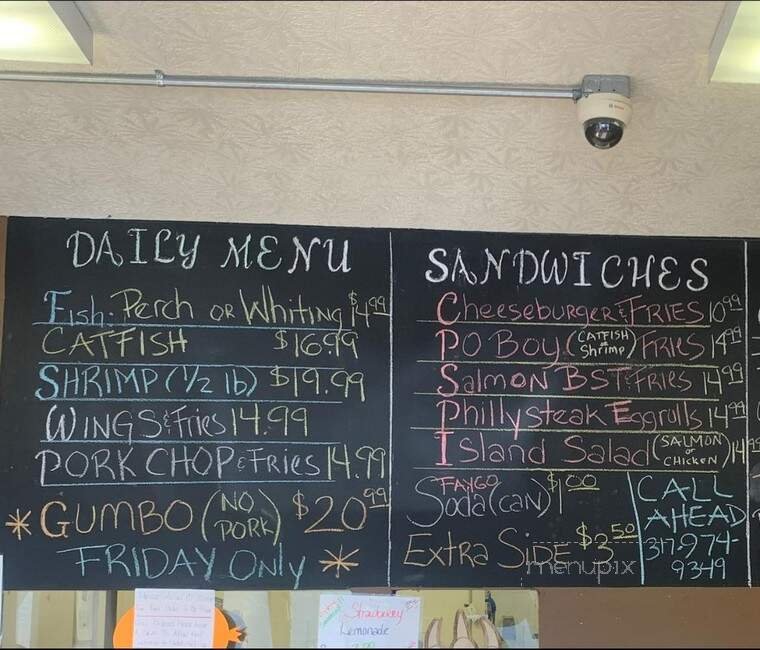 DAILY MENU
Fish: Perch OR Whiting $14.99
CATFISH $16.99
SHRIMP (1/2 lb) $19.99
WINGS & Fries 14.99
PORK CHOP & FRIES 14.99
* GUMBO (NO PORK) $20.99
FRIDAY ONLY *
SANDWICHES
Cheeseburger & FRIES 10.99
PO BOY (CATFISH or Shrimp) FRIES 14.99
Salmon BST & FRIES 14.99
Philly steak Eggrolls 14.99
Island Salad (SALMON or CHICKEN) 14.99
FAYGO
Soda (can) $1.00
Extra Side $3.50
CALL
AHEAD
317-974-
9349
menupix
Strawberry
Lemonade